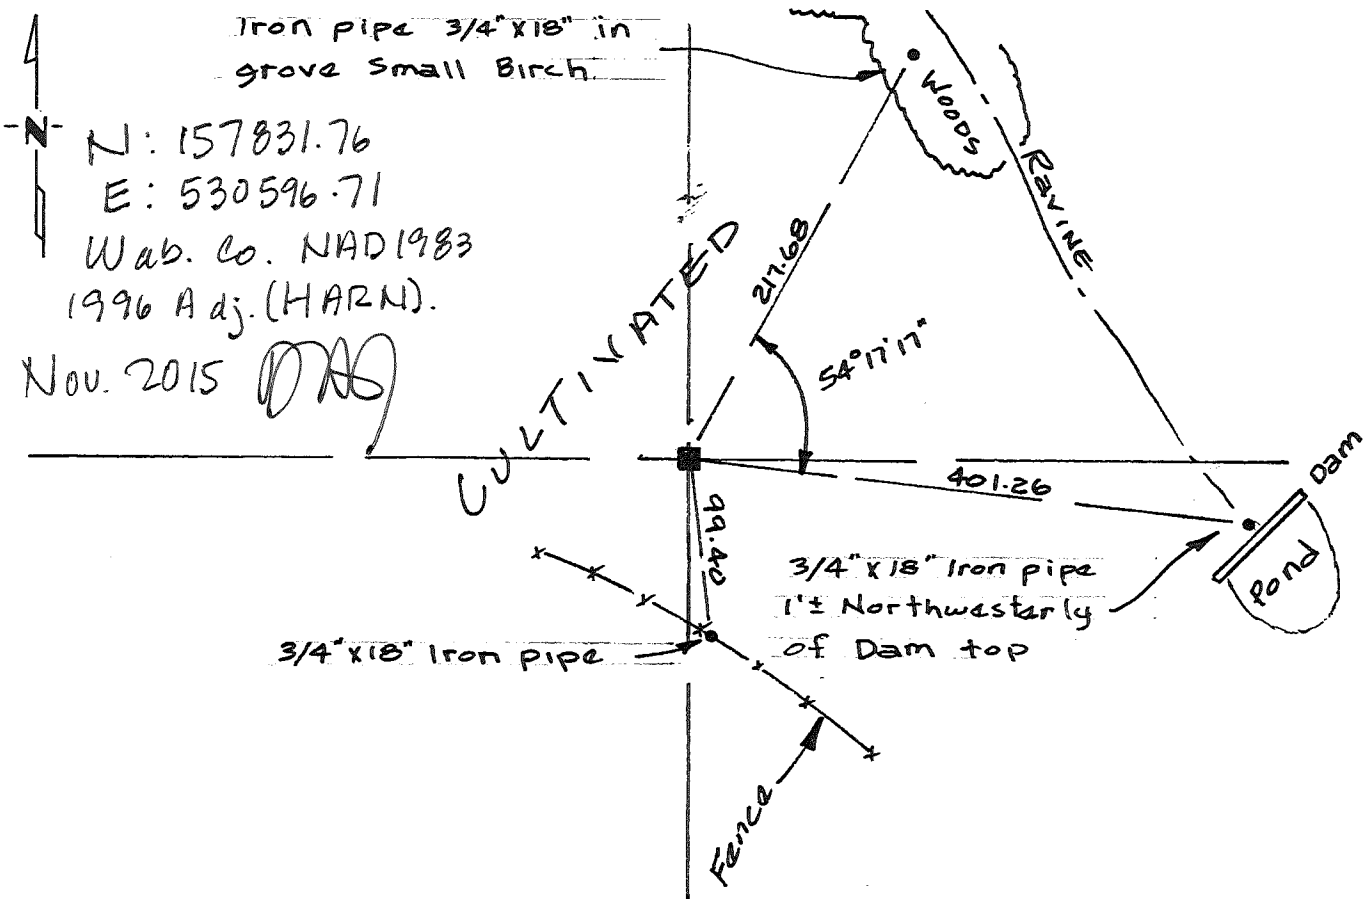 Iron pipe 3/4"x18" in
grove Small Birch
N
N: 157831.76
E: 530596.71
Wab. Co. NAD1983
1996 Adj. (HARN).
Nov. 2015
WOODS
RAVINE
CULTIVATED
217.68
54°17'17"
401.26
99.40
Dam
Pond
3/4"x18" Iron pipe
1'± Northwesterly
of Dam top
3/4"x18" Iron pipe
Fence